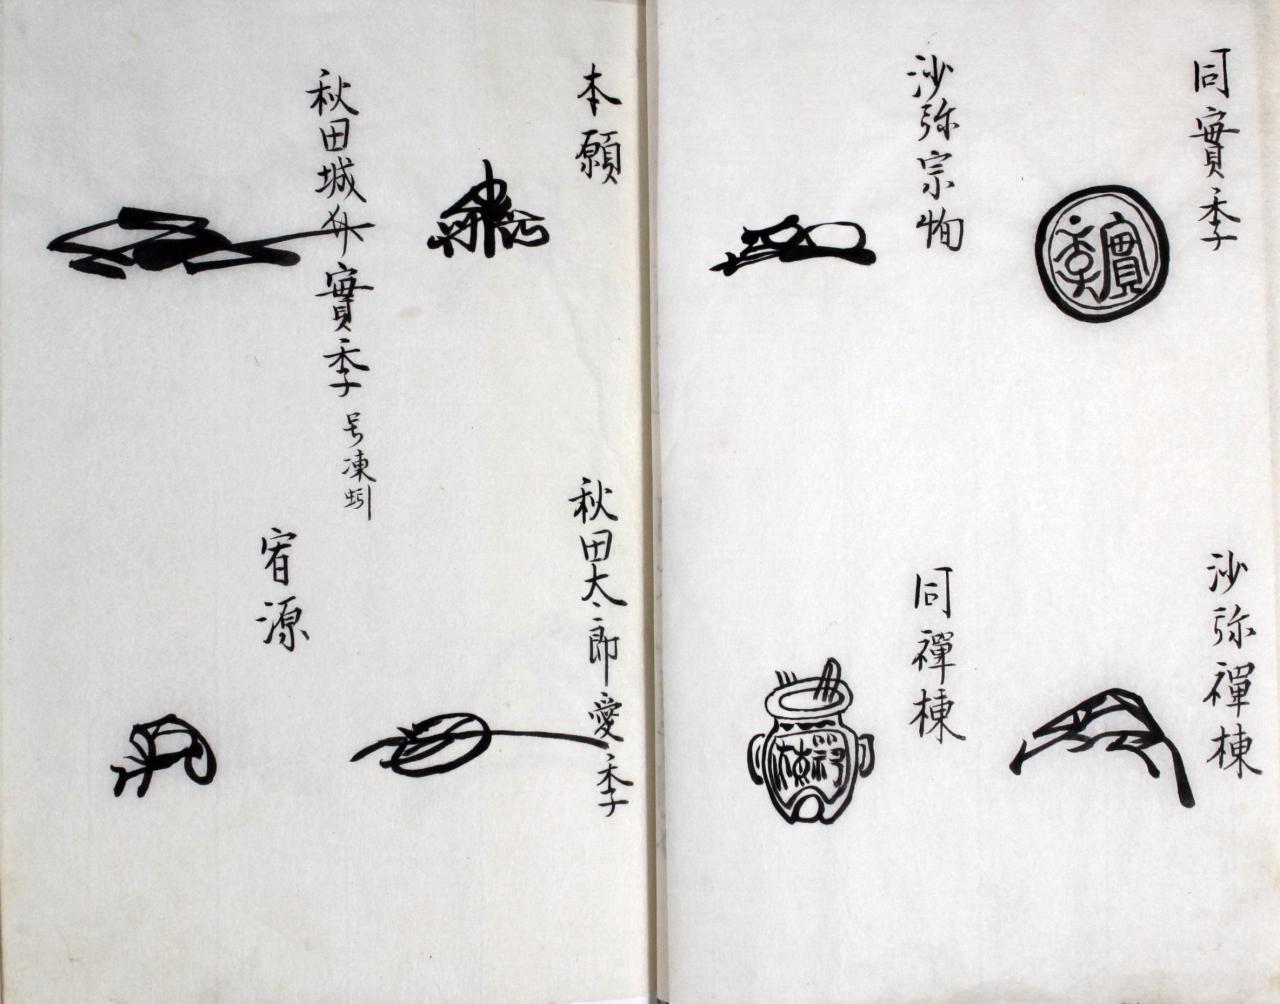 同實季
實季
沙弥禪棟
沙弥宗恂
同禪棟
禪棟
本願
秋田太郎愛季
秋田城介實季号凍蚓
宥源